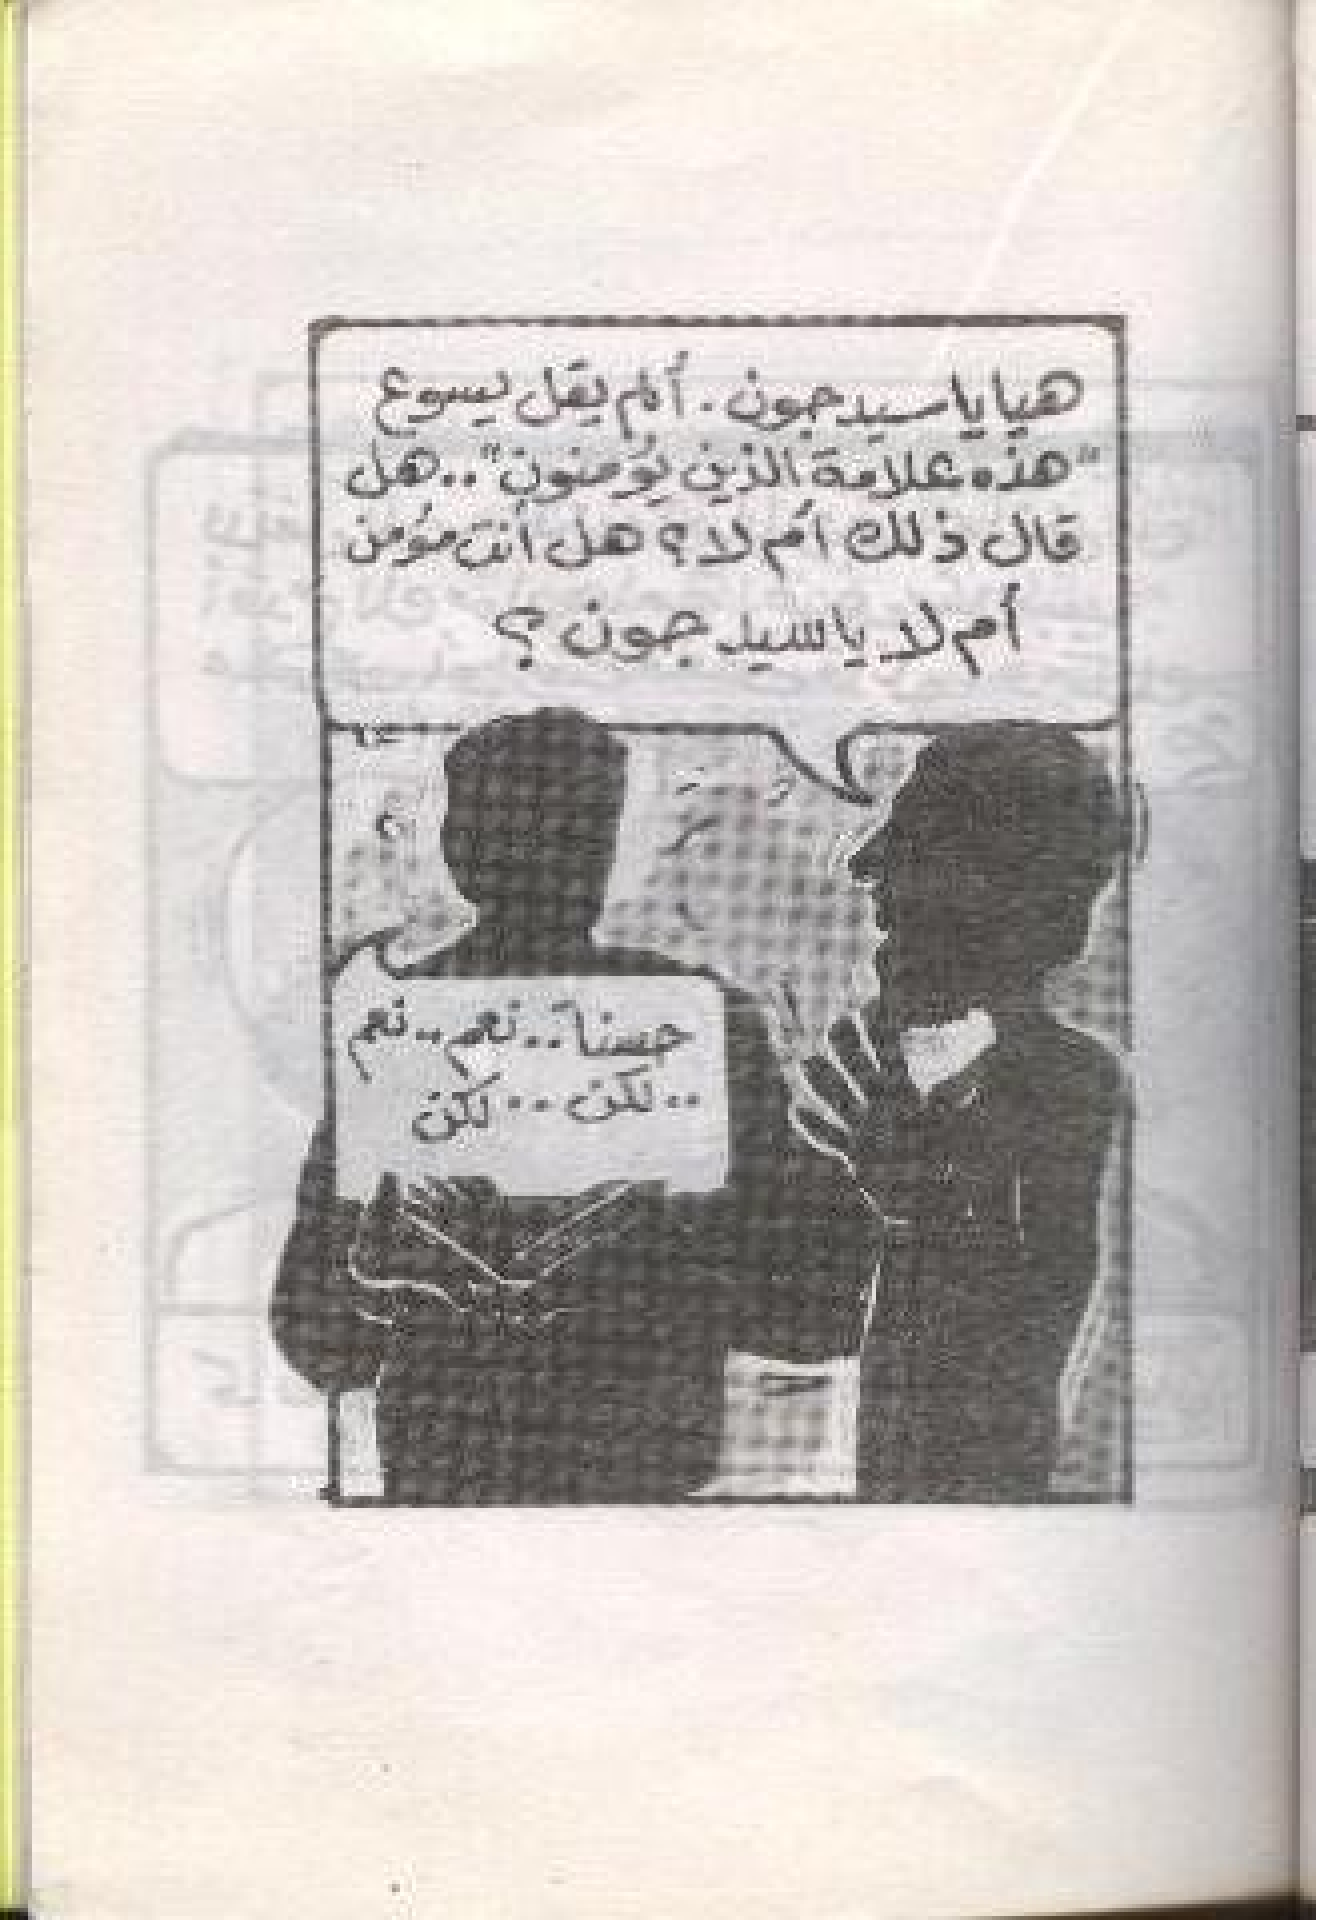 هيا يا سيد جون. ألم يقل يسوع
"هذه علامة الذين يؤمنون".. هل
قال ذلك أم لا؟ هل أنت مؤمن
أم لا يا سيد جون؟
حسنا.. نعم.. نعم
.. لكن .. لكن